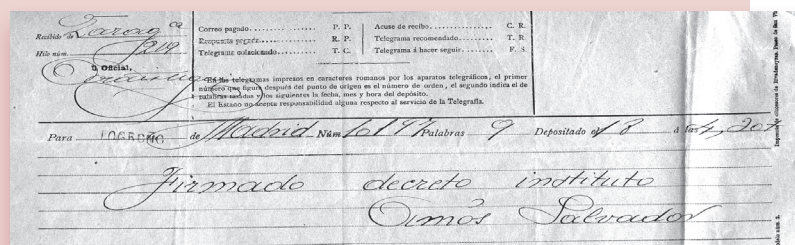 Recibido de Zaroag ca
Hilo núm. 1219
D. Oficial,
Correo pagado........... P. P.
Respuesta pagada........... R. P.
Telegrama colacionado........... T. C.
Acuse de recibo........... C. R.
Telegrama recomendado........... T. R.
Telegrama á hacer seguir........... F. S.
En los telegramas impresos en caracteres romanos por los aparatos telegráficos, el primer
número que figura después del punto de origen es el número de orden, el segundo indica el de
palabras tasadas y los siguientes la fecha, mes y hora del depósito.
El Estado no acepta responsabilidad alguna respecto al servicio de la Telegrafía.
Para LOGROÑO de Madrid Núm 6197 Palabras 9 Depositado el 8 á las
Firmado decreto instituto
Amós Salvador